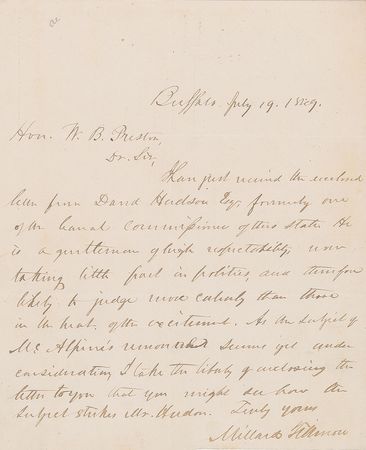 Buffalo July 19. 1849.
Hon. W. B. Preston,
Dr. Sir,
I have just received the enclosed
letter from David Hudson Esq, formerly one
of the Canal Commissioners of this state. He
is a gentleman of high respectability, now
taking little part in politics, and therefore
likely to judge more calmly than those
in the heat of the excitement. As the subject of
Mc Alpine's removal seems yet under
consideration, I take the liberty of enclosing the
letter to you that you might see how the
subject strikes Mr. Hudson. Truly yours
Millard Fillmore